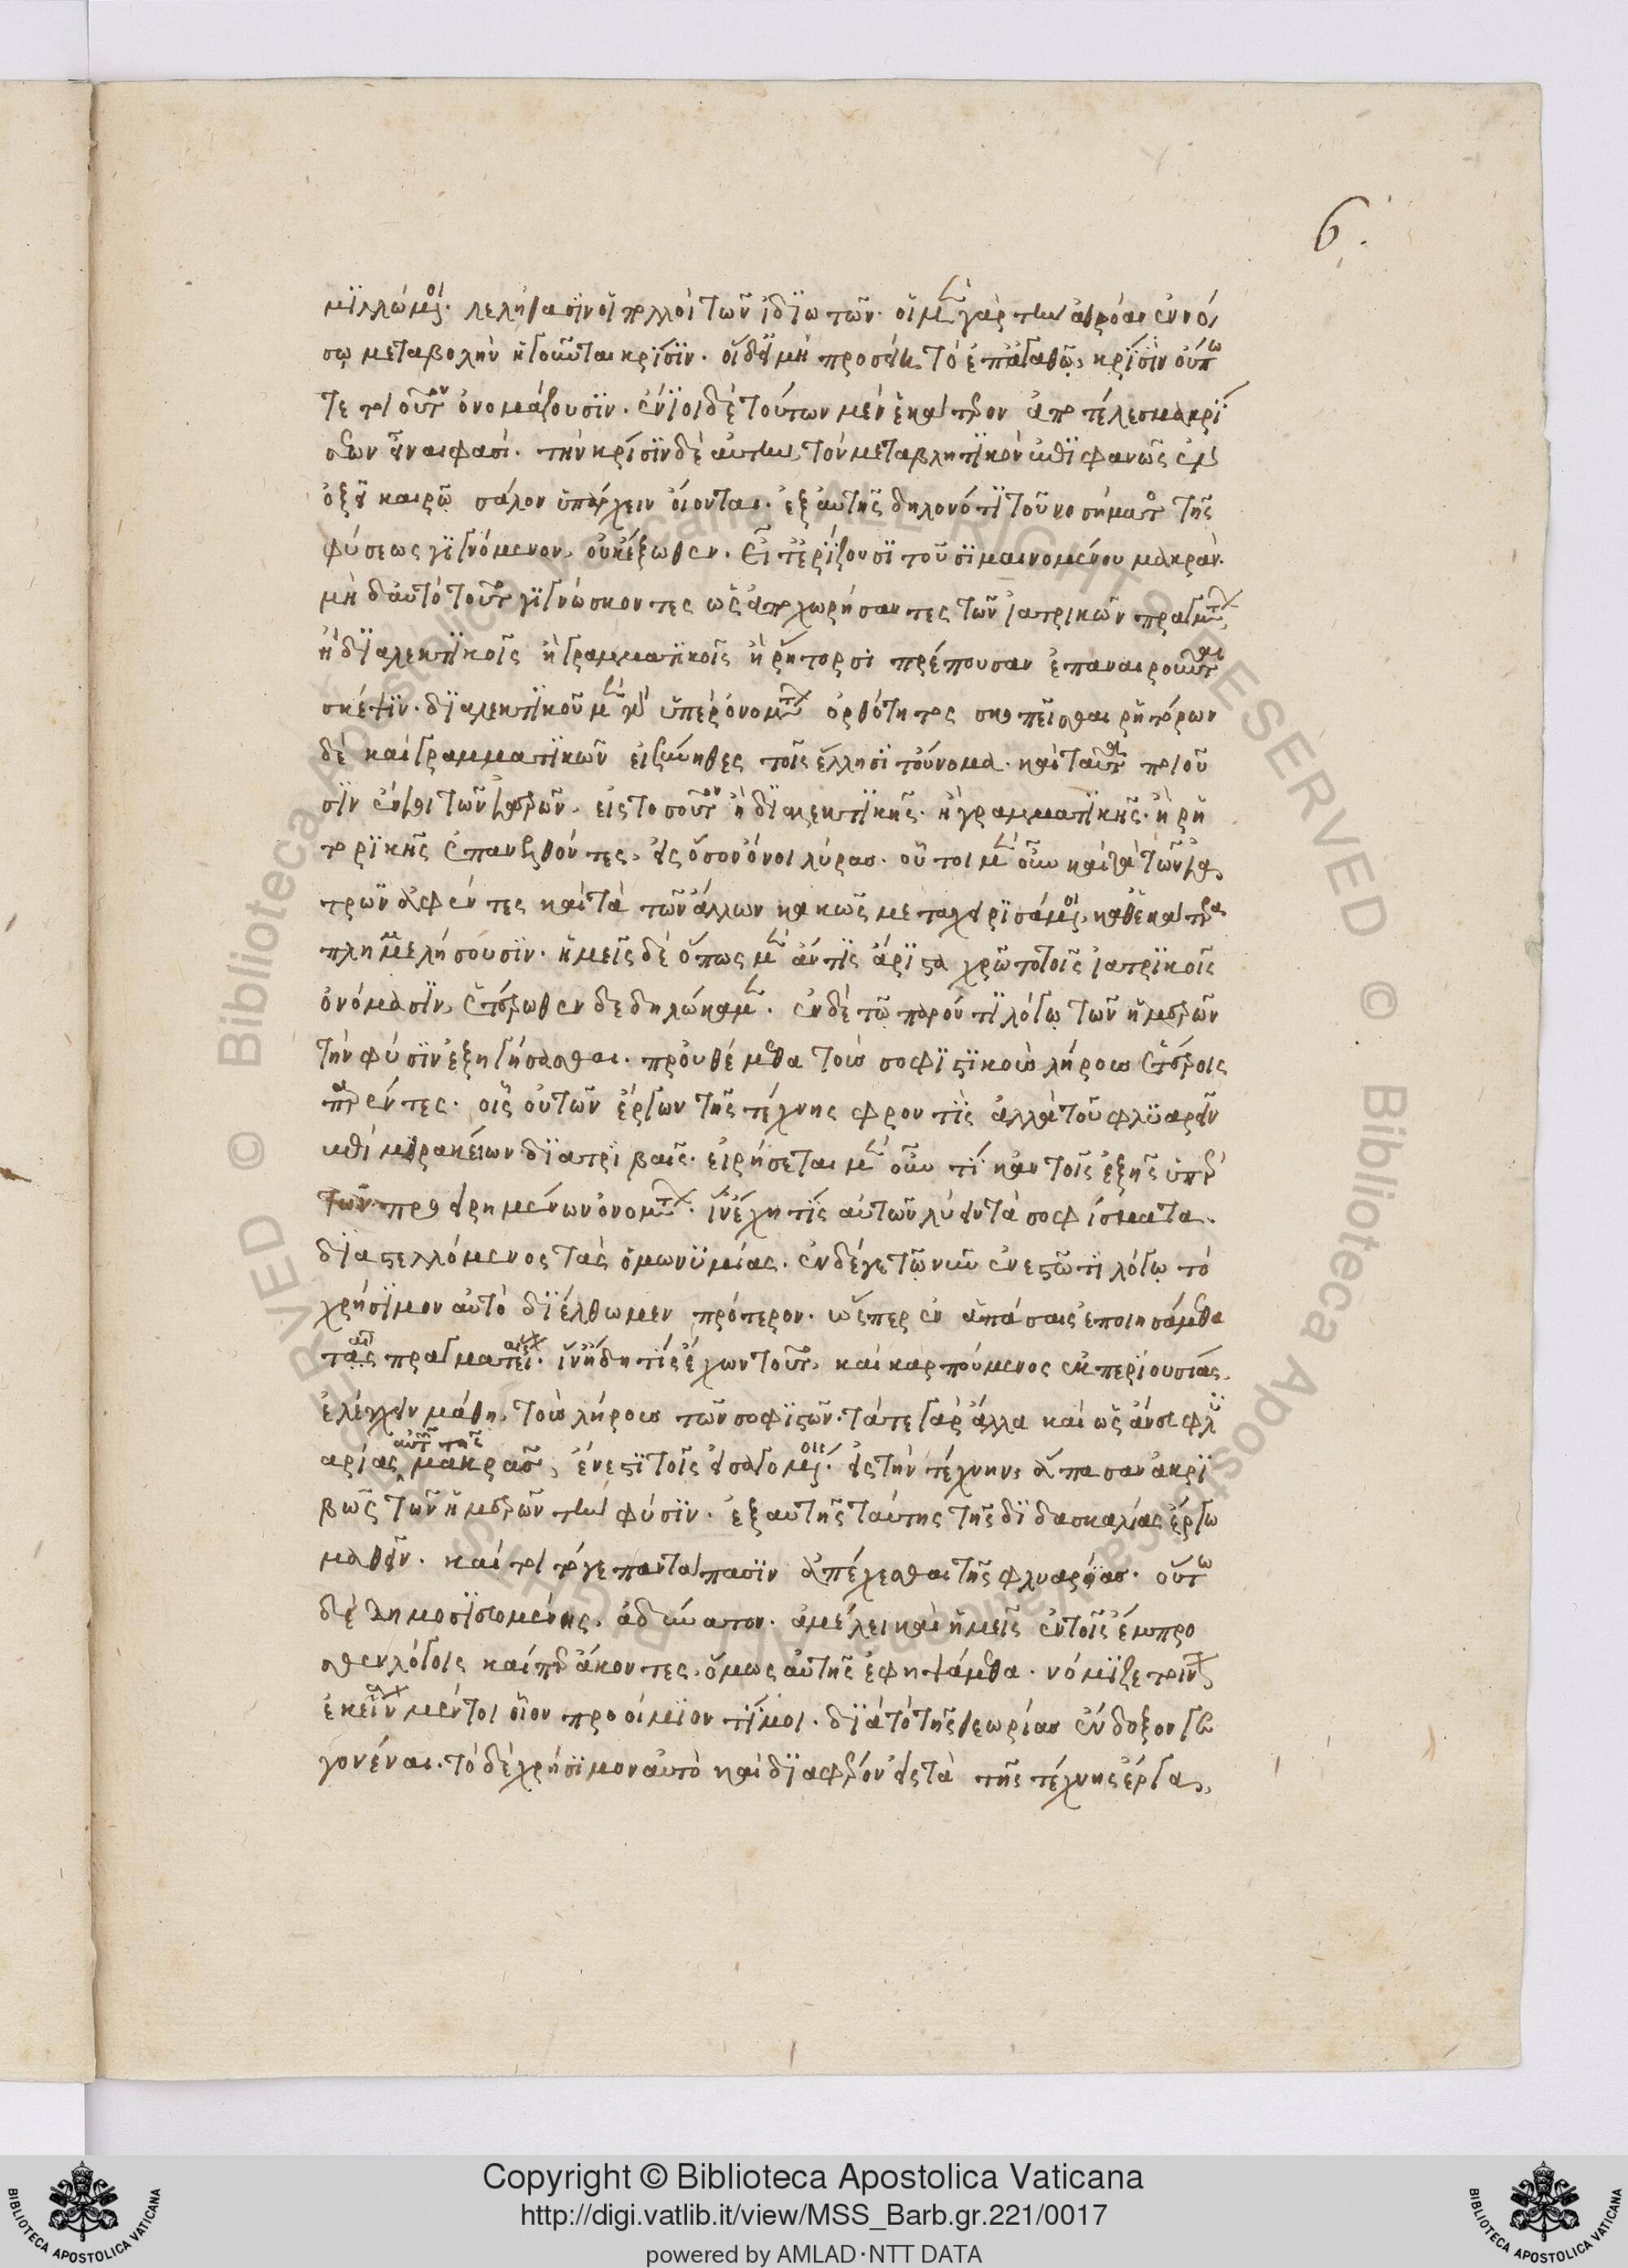 6.
μϊλλώμενοι. λελήθασϊν οἱ πολλοὶ τῶν ἰδϊωτῶν. οἱ μὲν γὰρ τὴν ἀθρόαν ἐν νό
σῳ μεταβολὴν ἡγοῦνται κρίσϊν. οἱ δ' εἰ μὴ προσείη τὸ ἐπ' ἀγαθῷ, κρίσϊν οὔπω
τὸ τοιοῦτον ὀνομάζουσϊν. ἔνϊοι δὲ τούτων μὲν ἑκάτερον ἀποτέλεσμα κρί
σεων εἶναι φασί. τὴν κρίσϊν δὲ αὐτὴν, τὸν μεταβλητϊκὸν καὶ ἐπϊφανῶς ἐν
ὀξεῖ καιρῷ σάλον ὑπάρχειν οἴονται. ἐξ αὐτῆς δηλονότϊ τοῦ νοσήματος τῆς
φύσεως γϊγνόμενον, οὐκ ἔξωθεν. ἔτι τ' ἐρίζουσϊ τοῦ σϊμαινομένου μακράν.
μὴ δ' αὐτὸ τοῦτο γϊγνώσκοντες ὡς ἀποχωρήσαντες τῶν ἰατρικῶν πραγμάτων,
ἢ δϊαλεκτϊκοῖς ἢ γραμματϊκοῖς ἢ ῥήτορσι πρέπουσαν ἐπαναιροῦνται
σκέψϊν. δϊαλεκτϊκοῦ μὲν γὰρ ὑπὲρ ὀνομάτων ὀρθότητος σκοπεῖσθαι ῥητόρων
δὲ καὶ γραμματϊκῶν εἰ σύνηθες τοῖς ἕλλησϊ τοὔνομα. καὶ ταῦτα ποιοῦ
σϊν ἔνιοι τῶν ἰατρῶν. εἰς τοσοῦτον ἢ δϊαλεκτϊκῆς. ἢ γραμματϊκῆς. ἢ ῥη
τορϊκῆς ἐπανελθόντες, εἰς ὅσον ὄνοι λύρας. οὗτοι μὲν οὖν καὶ τὰ τῶν ἰα
τρῶν ἀφέντες καὶ τὰ τῶν ἄλλων κακῶς μεταχειρϊσάμενοι, καθ' ἑκάτερα
πλημμελήσουσϊν. ἡμεῖς δὲ ὅπως μὲν ἄν τϊς ἄρϊστα χρῷτο τοῖς ἰατρϊκοῖς
ὀνόμασϊν, ἑτέρωθεν δεδηλώκαμεν. ἐν δὲ τῷ παρόντϊ λόγῳ τῶν ἡμερῶν
τὴν φύσϊν ἐξηγήσασθαι. προυθέμεθα τοὺς σοφϊστϊκοὺς λήρους ἑτέροις
παρέντες. οἷς οὐ τῶν ἔργων τῆς τέχνης φροντϊς ἀλλὰ τοῦ φλϋαρεῖν
ἐπὶ μειρακείων δϊατριβαῖς. εἰρήσεται μὲν οὖν τϊ κἀν τοῖς ἑξῆς ὑπὲρ
τῶν προειρημένων ὀνομάτων. ἵν' ἔχῃ τϊς αὐτῶν λύειν τὰ σοφίσματα.
δϊαστελλόμενος τὰς ὁμωνϋμίας. ἐν δέ γε τῷ νῦν ἐνεστῶτϊ λόγῳ τὸ
χρήσϊμον αὐτὸ δϊέλθωμεν πρότερον. ὥσπερ ἐν ἁπάσαις ἐποιησάμεθα
ταῖς πραγματείαις. ἵν' ἤδη τίς ἔχων τοῦτο, καὶ καρπούμενος ἐκ περϊουσίας,
ἐλέγχειν μάθῃ, τοὺς λήρους τῶν σοφϊστῶν. τά τε γὰρ ἄλλα καὶ ὡς ἄνευ φλϋ
αρίας αὐτῆς τῆς μακρᾶς, ἔνεστϊ τοῖς εἰσαγομένοις. εἰς τὴν τέχνην, ἅπασαν ἀκρϊ
βῶς τῶν ἡμερῶν τὴν φύσϊν. ἐξ αὐτῆς ταύτης τῆς δϊδασκαλίας ἔργῳ
μαθεῖν. καί τοι τό γε πανταπασϊν ἀπέχεσθαι τῆς φλυαρίας. οὕτω
δὲ δημοσϊευομένης, ἀδύνατον. ἀμέλει καὶ ἡμεῖς ἐν τοῖς ἔμπρο
σθεν λόγοις καίπερ ἄκοντες, ὅμως αὐτῆς ἐφηψάμεθα. νόμϊζε τοίνυν
ἐκεῖνα μέντοι οἷον προοίμϊον τϊ μοι. δϊὰ τὸ τῆς θεωρίας ἔνδοξον γε
γονέναι. τὸ δὲ χρήσϊμον αὐτὸ καὶ δϊαφέρον εἰς τὰ τῆς τέχνης ἔργα,
Copyright © Biblioteca Apostolica Vaticana
http://digi.vatlib.it/view/MSS_Barb.gr.221/0017
powered by AMLAD·NTT DATA
BIBLIOTECA APOSTOLICA VATICANA
BIBLIOTECA APOSTOLICA VATICANA